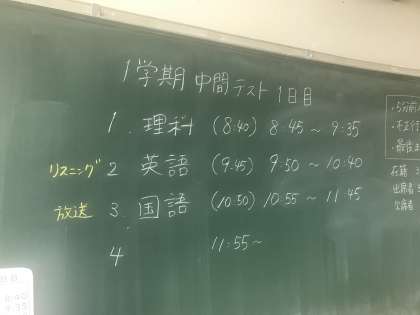 1学期 中間テスト 1日目
1. 理科 (8:40) 8:45 ~ 9:35
リスニング 2 英語 (9:45) 9:50 ~ 10:40
放送 3. 国語 (10:50) 10:55 ~ 11:45
4 11:55~
・5分前
・不正行
・最後ま
在籍
出席者
欠席者